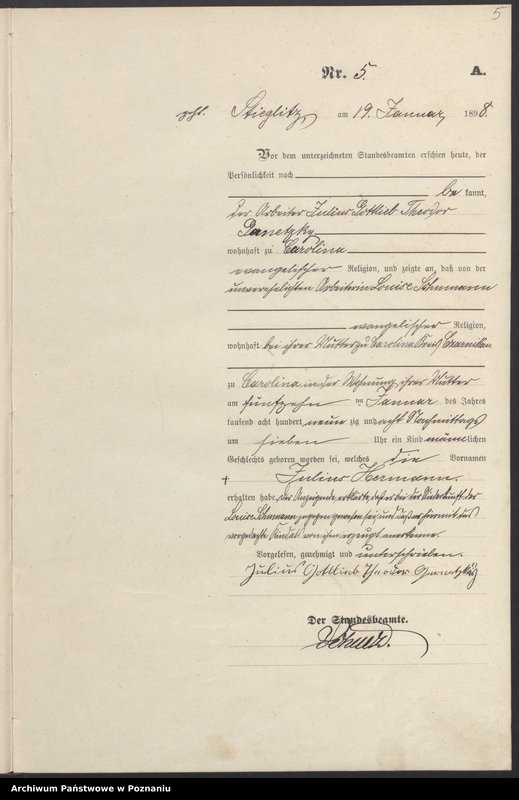 5
Nr. 5. A.
Stieglitz, am 19. Januar, 1898.
Vor dem unterzeichneten Standesbeamten erschien heute, der
Persönlichkeit nach
be kannt,
der Arbeiter Julius Gottlieb Theodor
wohnhaft zu Carolina
evangelischer Religion, und zeigte an, daß von der
unverehelichten Arbeiterin Louise Schumann
evangelischer Religion,
wohnhaft bei ihrer Mutter zu Carolina Kreis Czarnikau
zu Carolina in der Wohnung ihrer Mutter
am fünfzehn ten Januar des Jahres
tausend acht hundert neun zig und acht Nachmittags
um sieben Uhr ein Kind männlichen
Geschlechts geboren worden sei, welches die Vornamen
Julius Hermann.
erhalten habe, der Anzeigende erklärte, daß er bei der Niederkunft der
Louise Schumann zugegen gewesen sei und daß er hiermit das
vorgedachte Kind als von ihm erzeugt anerkenne.
Vorgelesen, genehmigt und unterschrieben.
Julius Gottlieb Theodor
Der Standesbeamte.
Archiwum Państwowe w Poznaniu